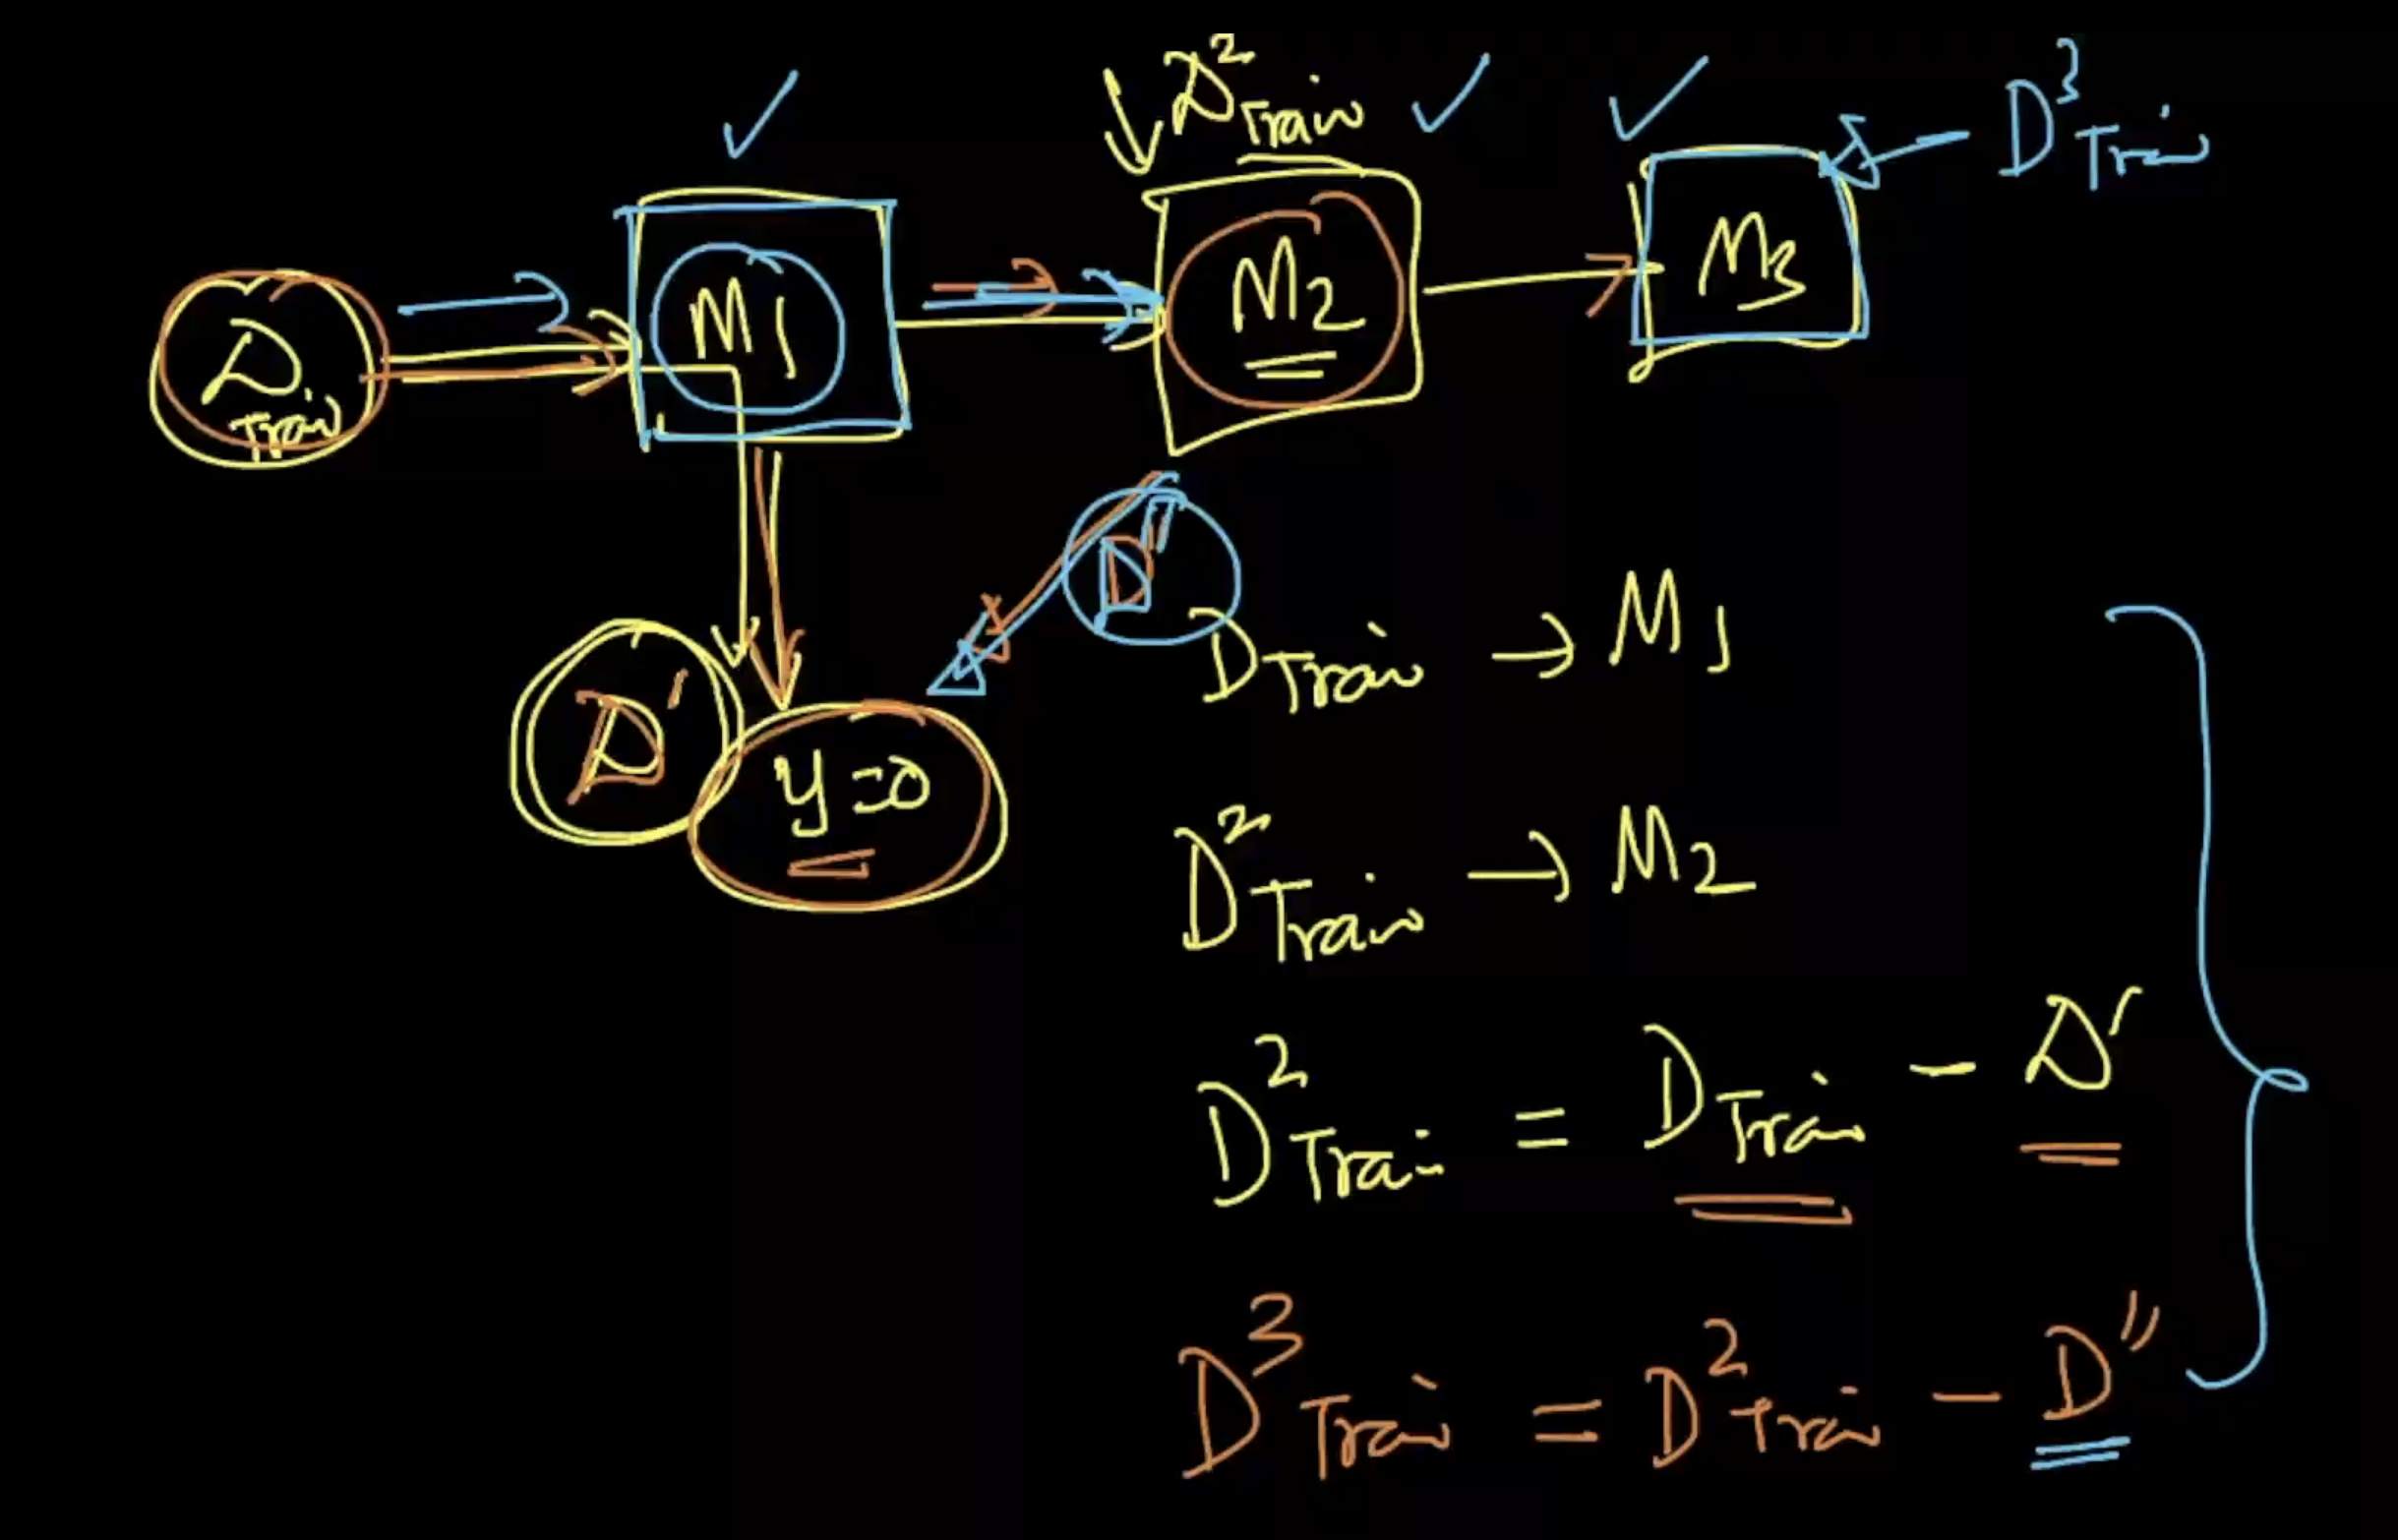 D²Train
D³Train
M1
M2
M3
DTrain
D''
D'
y=0
DTrain → M1
D²Train → M2
D²Train = DTrain - D'
D³Train = D²Train - D''